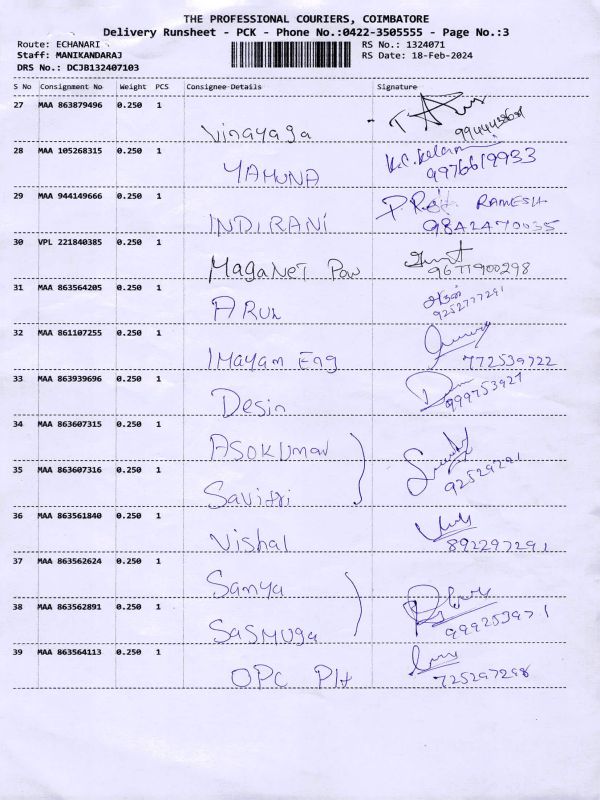 THE PROFESSIONAL COURIERS, COIMBATORE
Delivery Runsheet - PCK - Phone No.:0422-3505555 - Page No.:3
Route: ECHANARI RS No.: 1324071
Staff: MANIKANDARAJ RS Date: 18-Feb-2024
DRS No.: DCJB132407103
S No Consignment No Weight PCS Consignee Details Signature
27 MAA 863879496 0.250 1 Vinayaga
28 MAA 105268315 0.250 1 YAMUNA 9976619933
29 MAA 944149666 0.250 1 INDIRANI RAMESH 9842470035
30 VPL 221840385 0.250 1 MagaNeT Pow 9677900298
31 MAA 863564205 0.250 1 ARUL அருள் 9252777291
32 MAA 861107255 0.250 1 Imayam Eng 772539722
33 MAA 863939696 0.250 1 Desin 999753927
34 MAA 863607315 0.250 1 ASOKUmar
35 MAA 863607316 0.250 1 Savitri 92529291
36 MAA 863561840 0.250 1 Vishal 892297291
37 MAA 863562624 0.250 1 Samya
38 MAA 863562891 0.250 1 SaSmuga 999253971
39 MAA 863564113 0.250 1 OPC Plt 725297298